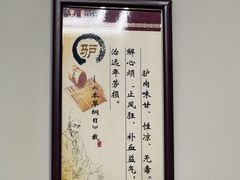 驴肉味甘、性凉、无毒。
解心烦、止风狂、补血益气，
治远年劳损。
《本草纲目》载
驴